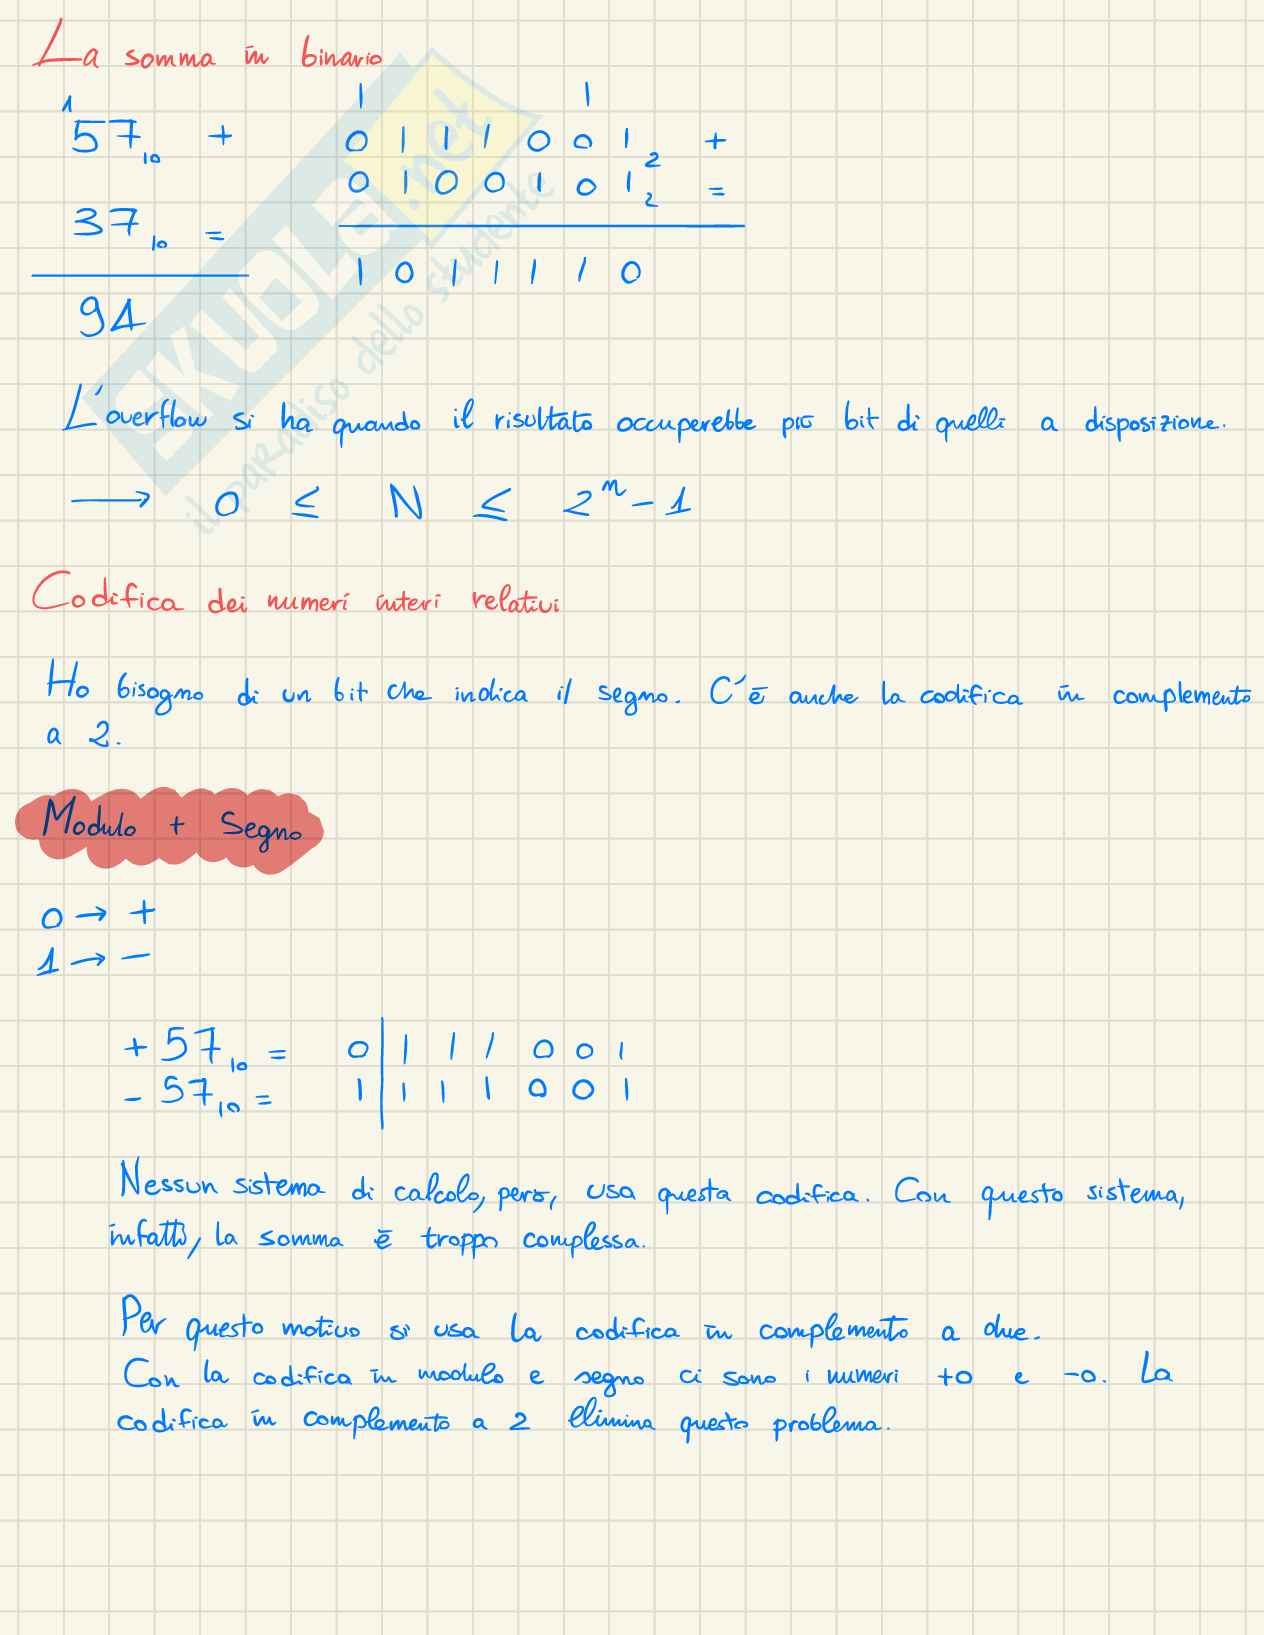 La somma in binario
1
57₁₀ +
37₁₀ =
94
1 1
0 1 1 1 0 0 1₂ +
0 1 0 0 1 0 1₂ =
1 0 1 1 1 1 0
L'overflow si ha quando il risultato occuperebbe più bit di quelli a disposizione.
→ 0 ≤ N ≤ 2ⁿ - 1
Codifica dei numeri interi relativi
Ho bisogno di un bit che indica il segno. C'è anche la codifica in complemento
a 2.
Modulo + Segno
0 → +
1 → -
+ 57₁₀ = 0 | 1 1 1 0 0 1
- 57₁₀ = 1 | 1 1 1 0 0 1
Nessun sistema di calcolo, però, usa questa codifica. Con questo sistema,
infatti, la somma è troppo complessa.
Per questo motivo si usa la codifica in complemento a due.
Con la codifica in modulo e segno ci sono i numeri +0 e -0. La
codifica in complemento a 2 elimina questo problema.
SKUOLA.net
il paradiso dello studente